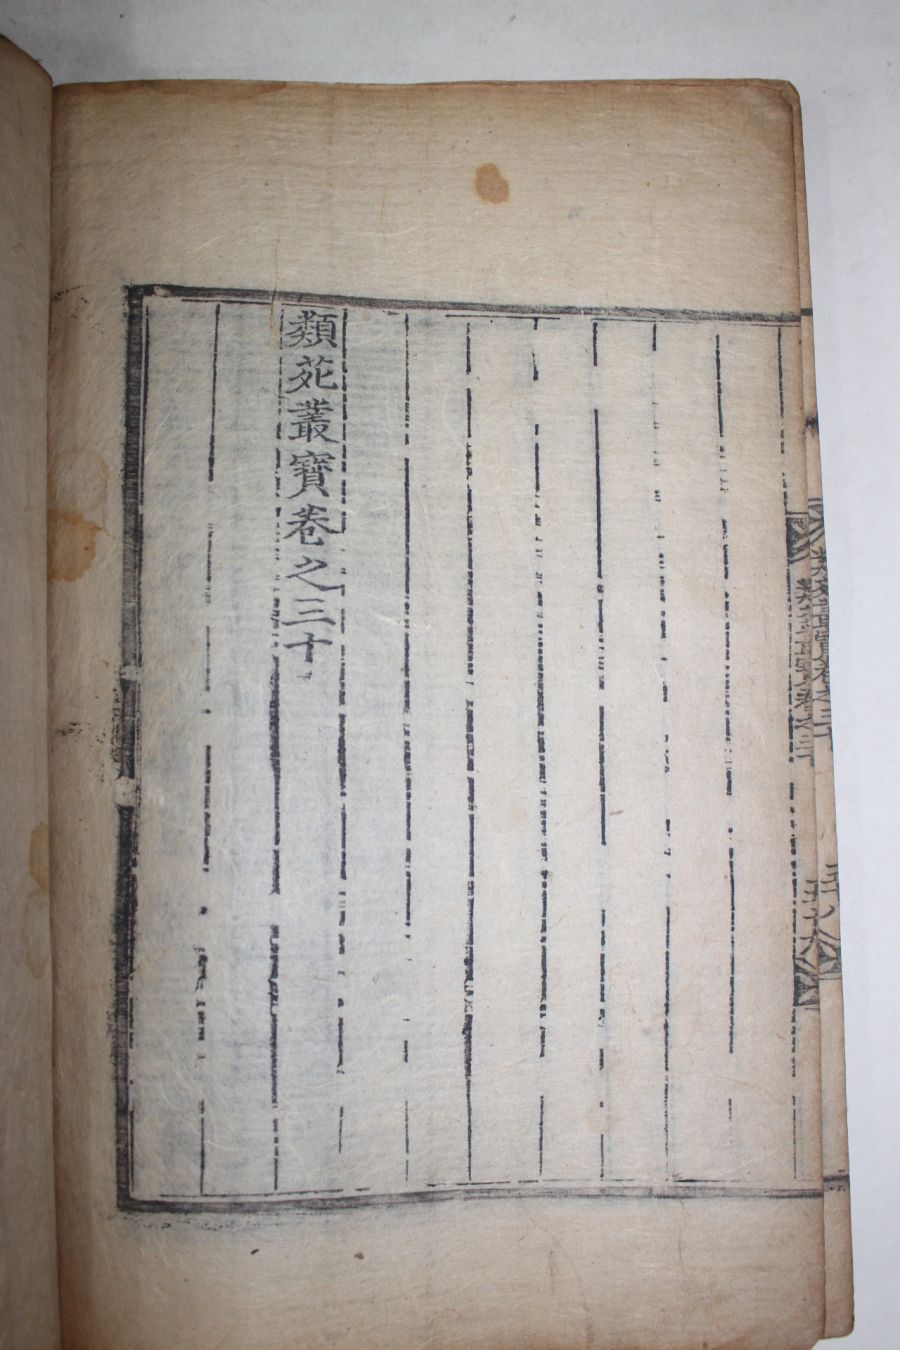 類苑叢寶卷之三十